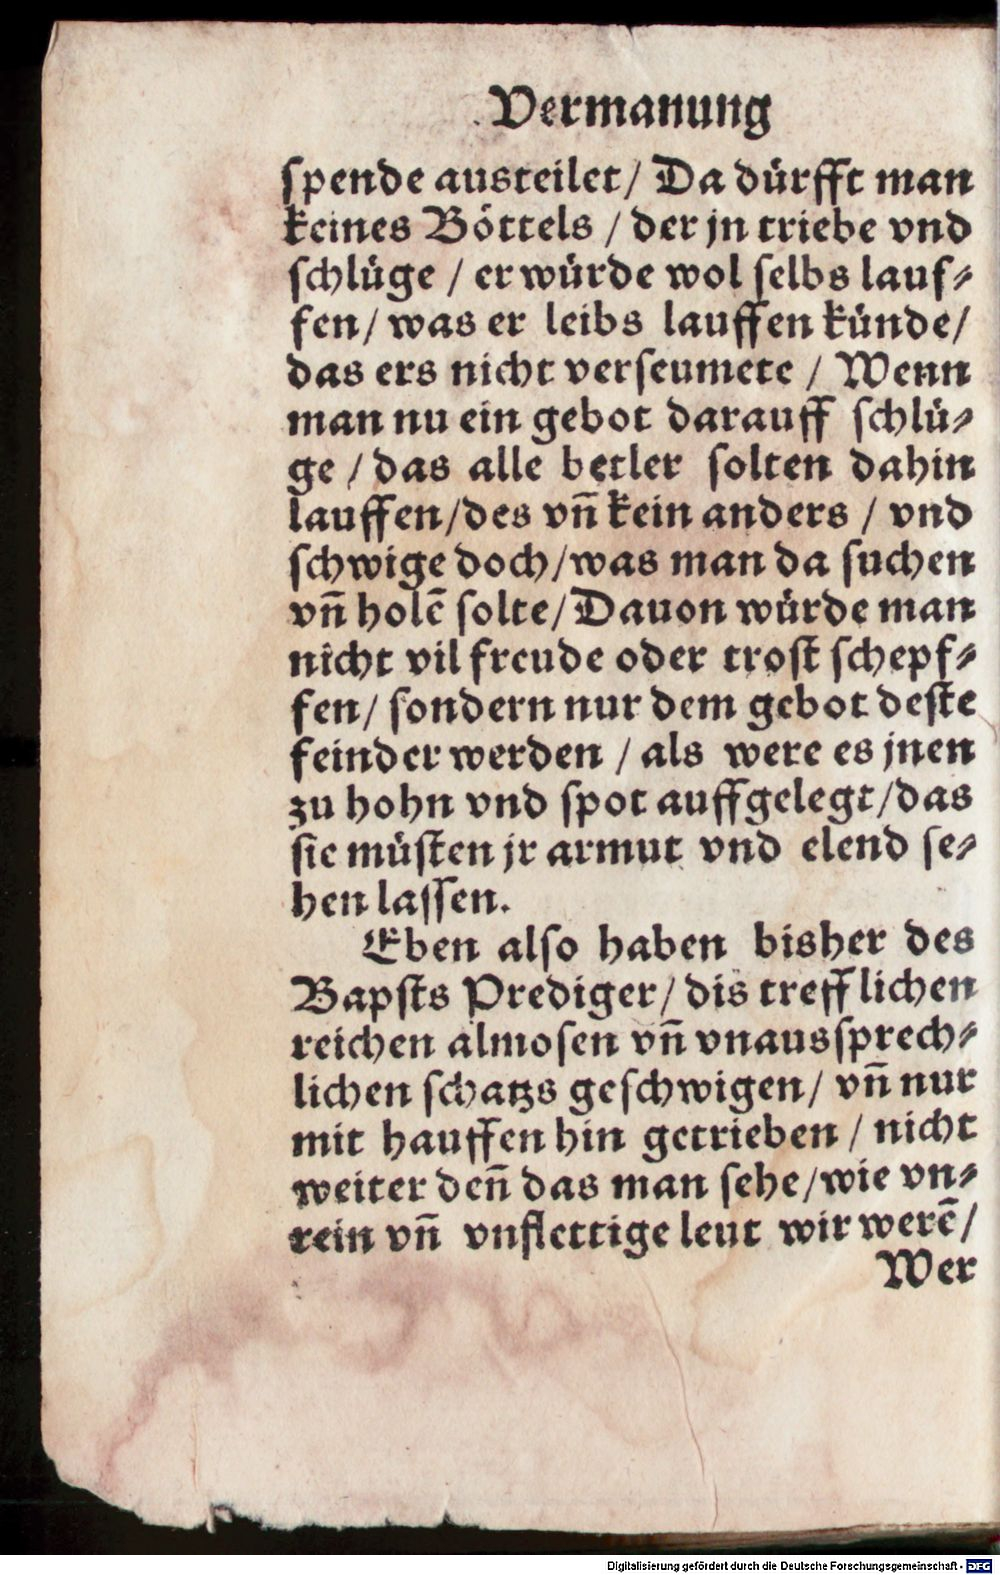 Vermanung
spende austeilet/ Da dürfft man
keines Böttels / der jn triebe vnd
schlüge / er würde wol selbs lauf⸗
fen/ was er leibs lauffen künde/
das ers nicht verseumete / Wenn
man nu ein gebot darauff schlü⸗
ge / das alle betler solten dahin
lauffen/des vn̄ kein anders / vnd
schwige doch/was man da suchen
vn̄ holē solte/Dauon würde man
nicht vil freude oder trost schepf⸗
fen/ sondern nur dem gebot deste
feinder werden / als were es jnen
zu hohn vnd spot auffgelegt/das
sie müsten jr armut vnd elend se⸗
hen lassen.
Eben also haben bisher des
Bapsts Prediger/ dis trefflichen
reichen almosen vn̄ vnaussprech⸗
lichen schatzs geschwigen/ vn̄ nur
mit hauffen hin getrieben / nicht
weiter den̄ das man sehe/wie vn⸗
rein vn̄ vnflettige leut wir werē/
Wer
Digitalisierung gefördert durch die Deutsche Forschungsgemeinschaft - DFG